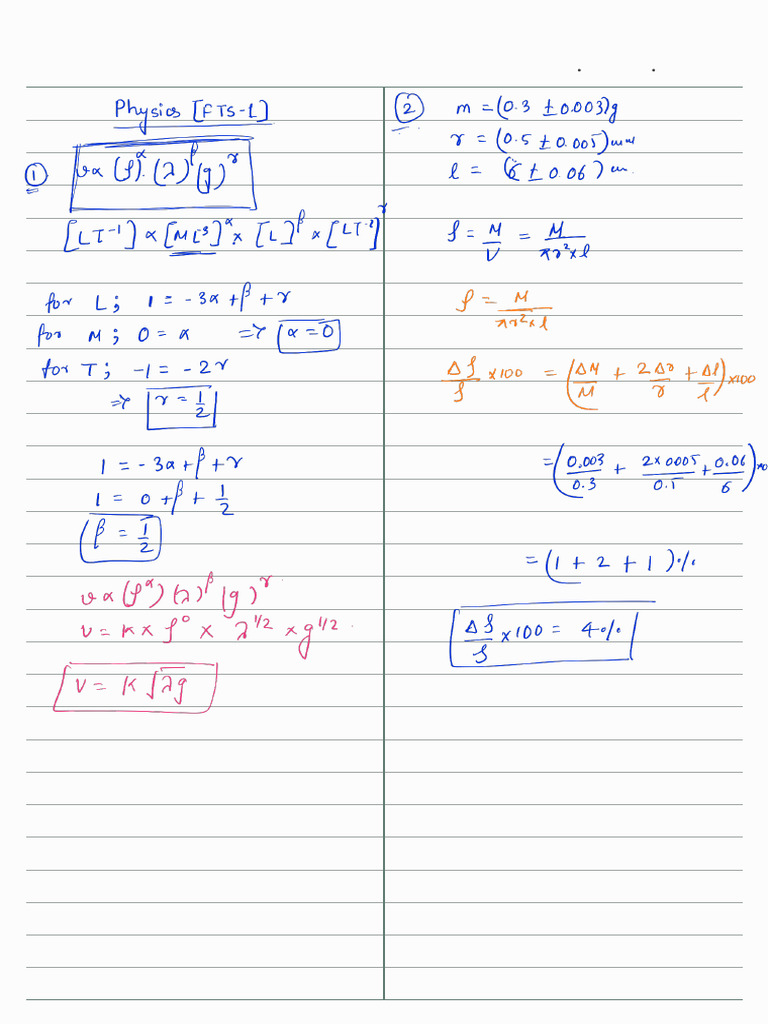 Physics [FTS-1]
① v α (ρ)^α . (λ)^β (g)^r
[LT⁻¹] α [ML⁻³]^α × [L]^β × [LT⁻²]^r
for L ; 1 = -3α + β + r
for M ; 0 = α ⇒ α = 0
for T ; -1 = -2r
⇒ r = 1/2
1 = -3α + β + r
1 = 0 + β + 1/2
β = 1/2
v α (ρ^α) (λ)^β (g)^r
v = K × ρ⁰ × λ^1/2 × g^1/2 .
V = K √λg
② m = (0.3 ± 0.003)g
r = (0.5 ± 0.005) mm
l = (6 ± 0.06) cm.
ρ = M/V = M/πr²×l
ρ = M/πr²×l
Δρ/ρ ×100 = (ΔM/M + 2Δr/r + Δl/l) ×100
= (0.003/0.3 + 2×0.005/0.5 + 0.06/6) ×
= (1 + 2 + 1) %
Δρ/ρ ×100 = 4%